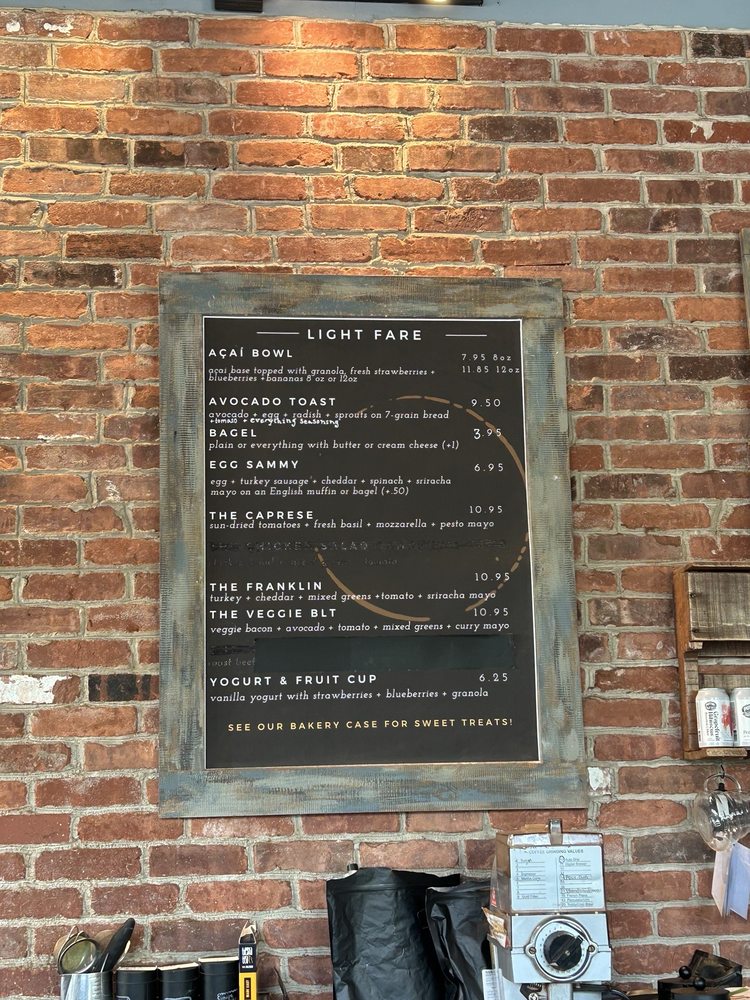 LIGHT FARE
AÇAÍ BOWL 7.95 8oz
açai base topped with granola, fresh strawberries + 11.85 12oz
blueberries +bananas 8 oz or 12oz
AVOCADO TOAST 9.50
avocado + egg + radish + sprouts on 7-grain bread
+tomato + everything seasoning
BAGEL 3.95
plain or everything with butter or cream cheese (+1)
EGG SAMMY 6.95
egg + turkey sausage + cheddar + spinach + sriracha
mayo on an English muffin or bagel (+.50)
THE CAPRESE 10.95
sun-dried tomatoes + fresh basil + mozzarella + pesto mayo
THE FRANKLIN 10.95
turkey + cheddar + mixed greens +tomato + sriracha mayo
THE VEGGIE BLT 10.95
veggie bacon + avocado + tomato + mixed greens + curry mayo
roast beef
YOGURT & FRUIT CUP 6.25
vanilla yogurt with strawberries + blueberries + granola
SEE OUR BAKERY CASE FOR SWEET TREATS!
Grapefruit
Hibiscus
COFFEE GRINDING VALUES